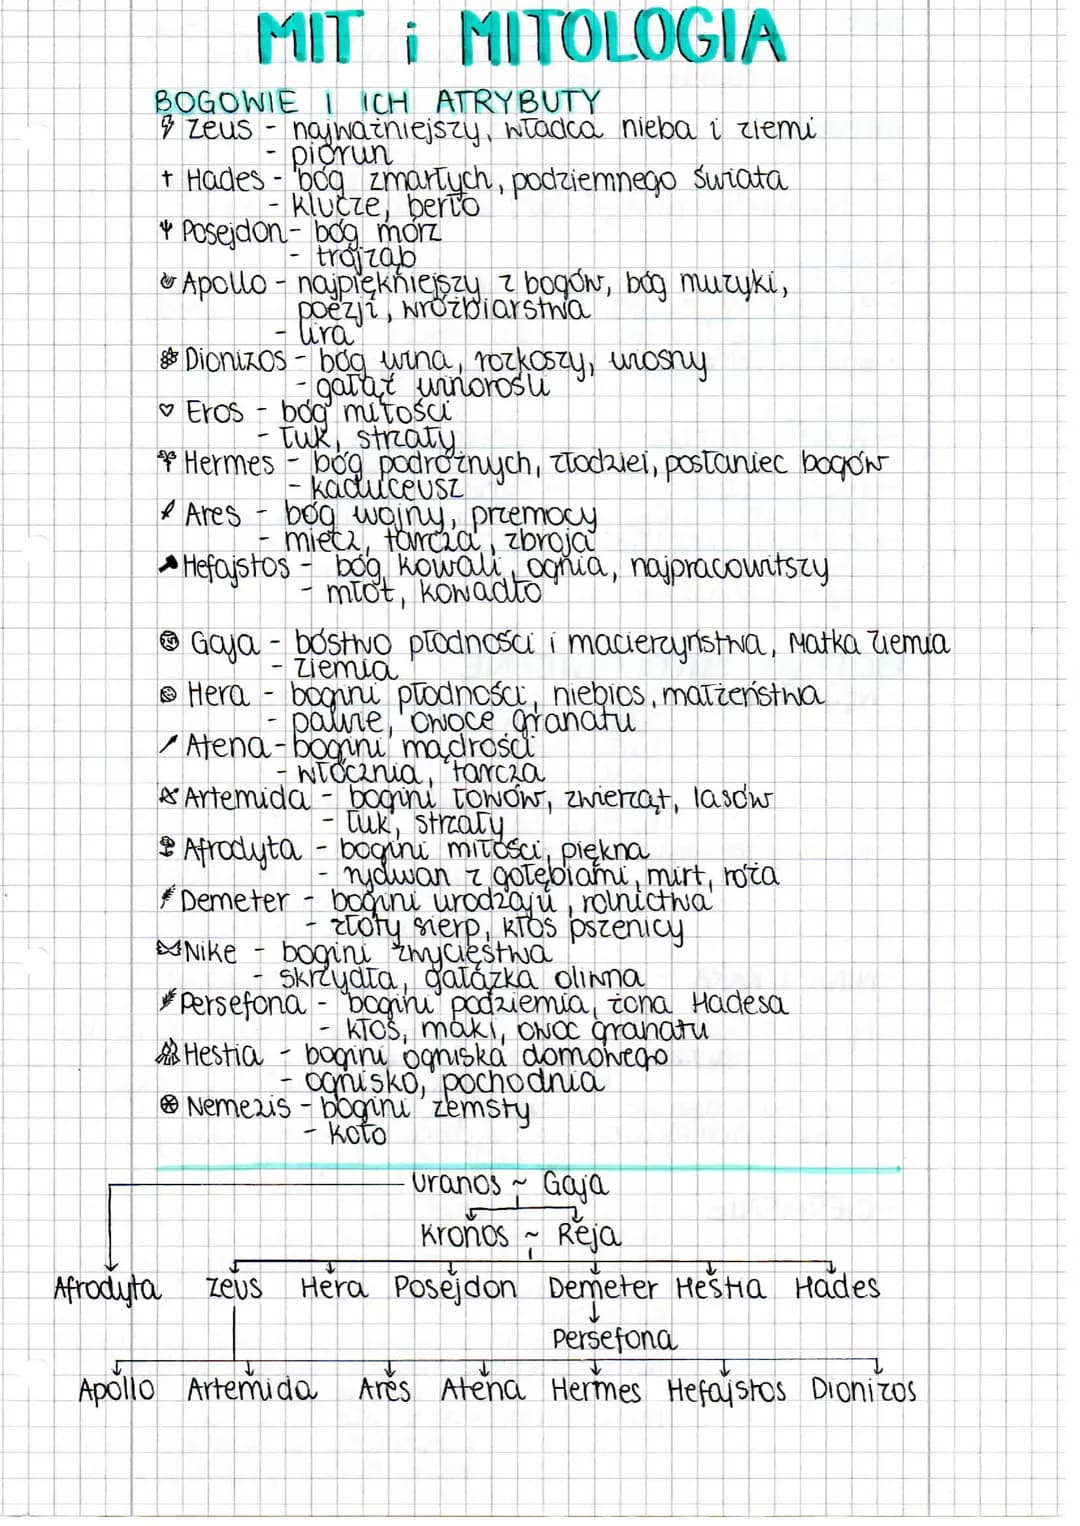 MIT i MITOLOGIA
BOGOWIE I ICH ATRYBUTY
Zeus - najważniejszy, władca nieba i ziemi
- piorun
Hades - bóg zmarłych, podziemnego świata
- klucze, berło
Posejdon - bóg mórz
- trójząb
Apollo - najpiękniejszy z bogów, bóg muzyki,
poezji, wróżbiarstwa
- lira
Dionizos - bóg wina, rozkoszy, wiosny
- gałąź winorośli
Eros - bóg miłości
- łuk, strzały
Hermes - bóg podróżnych, złodziei, posłaniec bogów
- kaduceusz
Ares - bóg wojny, przemocy
- miecz, tarcza, zbroja
Hefajstos - bóg kowali, ognia, najpracowitszy
- młot, kowadło
Gaja - bóstwo płodności i macierzyństwa, Matka Ziemia
- ziemia
Hera - bogini płodności, niebios, małżeństwa
- pawie, owoce granatu
Atena - bogini mądrości
- włócznia, tarcza
Artemida - bogini łowów, zwierząt, lasów
- łuk, strzały
Afrodyta - bogini miłości, piękna
- rydwan z gołębiami, mirt, róża
Demeter - bogini urodzaju, rolnictwa
- złoty sierp, kłos pszenicy
Nike - bogini zwycięstwa
- skrzydła, gałązka oliwna
Persefona - bogini podziemia, żona Hadesa
- kłos, maki, owoc granatu
Hestia - bogini ogniska domowego
- ognisko, pochodnia
Nemezis - bogini zemsty
- koło
Uranos ~ Gaja
Kronos ~ Reja
Afrodyta Zeus Hera Posejdon Demeter Hestia Hades
Persefona
Apollo Artemida Ares Atena Hermes Hefajstos Dionizos